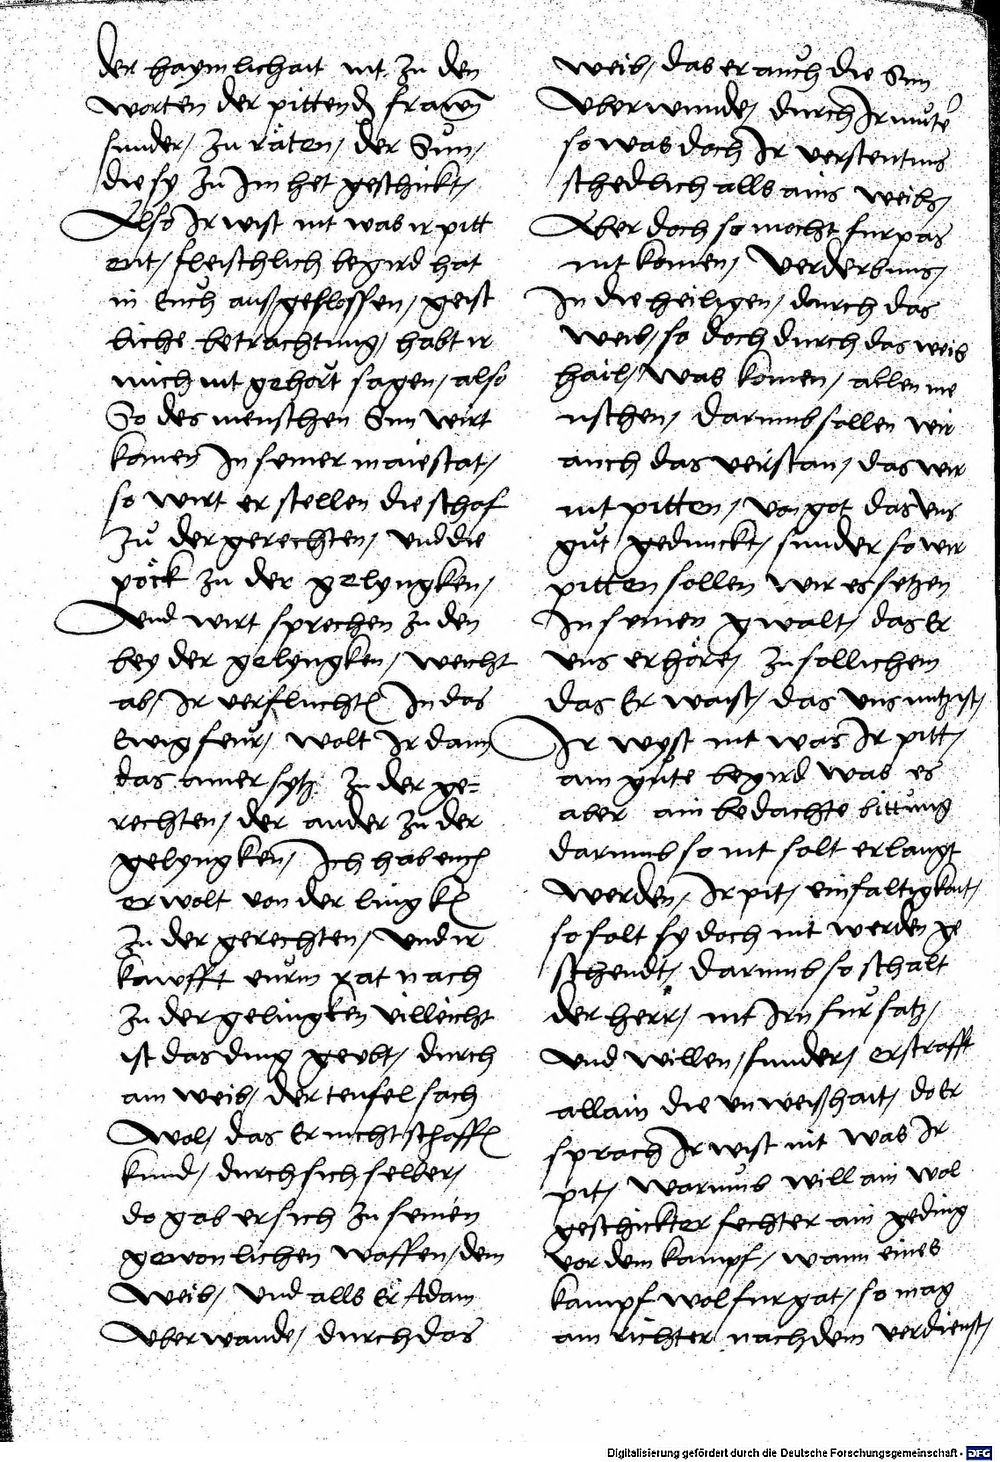 der haymlichait nit zu den
worten der pittenden frawen
sunder / zu räten / der Sun /
die sy zu Im het geschickt /
Also Ir wist nit was ir pitt
ent / fleischlich begird hat
in Euch außgeflossen / geist
liche betrachtung / habt ir
mich nit gehört sagen / also
So des menschen Sun wirt
komen In seiner maiestat /
so wirt er stellen die schof
Zu der gerechten / und die
pöck zu der gelyngken /
Und wirt sprechen zu den
bey der gelyngken / weicht
ab / Ir verfluchten In das
Ewig feur / wolt Ir dann
das ainer sytz zu der ge=
rechten / der ander zu der
gelyngken / Ich hab euch
erwolt von der lingken
Zu der gerechten / Und ir
kawfft eurn rat nach
Zu der gelingken villeicht
ist das ding geubt / durch
ain weib / der teufel sach
Wol / das Er nicht schaffen
kund / durch sich selber /
do gab er sich zu seinen
gewonlichen waffen / dem
Weib / und alls Er Adam
Uberwande / durch das
weib / das er auch die Sun
Uberwunde / durch Ir muter
so was doch Ir verstentnus
schedlich alls ains weibs /
Aber doch so mocht furpas
nit komen / Verderbnus /
In die heiligen / durch das
weib / so doch durch das weib
hail / was komen / allen me
nschen / darumb sollen wir
auch das verstan / das wir
nit pitten / von got das uns
gut gedunckt / sunder so wir
pitten sollen wir es setzen
In seinen gwalt / das Er
uns erhöre / zu sollichem
das Er waist / das uns nutz ist /
Ir wyst nit was Ir pitt /
ain güte begird was es
aber ain bedachte bittung
darumb so nit solt erlangt
werden / Ir pit / einfaltigkait /
so solt sy doch nit werden ge
schendt / darumb so schalt
der herr / nit Irn fursatz /
Und willen / sunder / er strafft
allain die unweißhait / do Er
sprach Ir wist nit was Ir
pit / warumb will ain wol
geschickter fechter ain geding
vor dem kampf / wann eines
kampf wol furgat / so mag
ain richter nach dem verdienst /
Digitalisierung gefördert durch die Deutsche Forschungsgemeinschaft - DFG